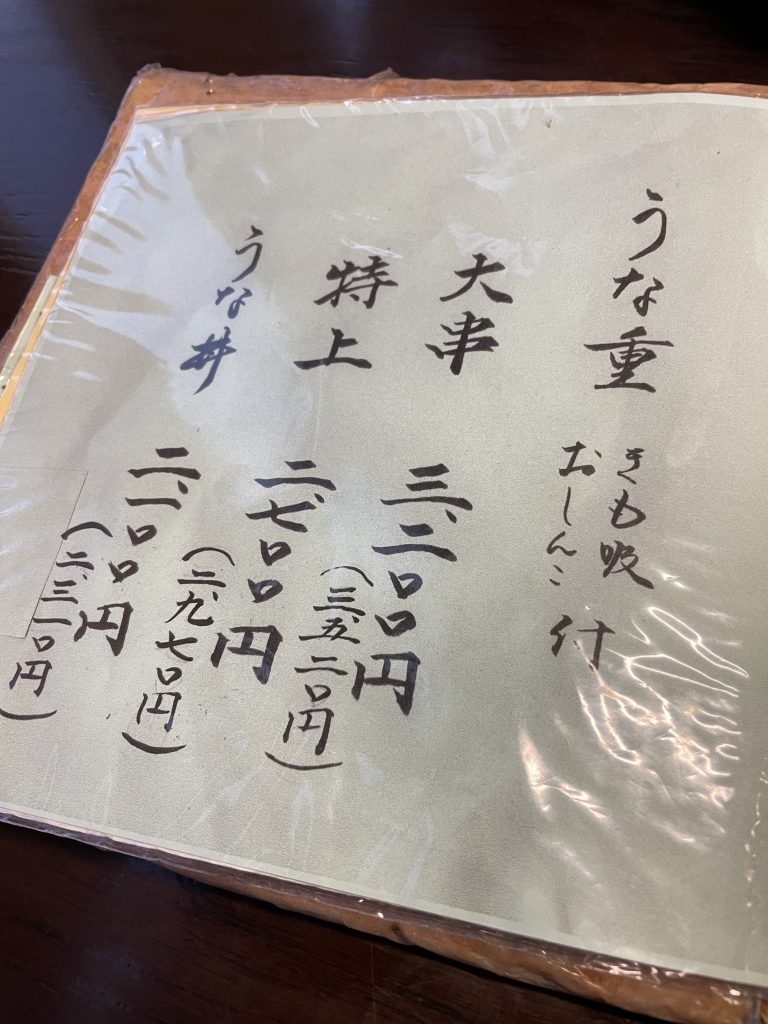 うな重
きも吸
おしんこ
付
大串
三、二〇〇円
(三、五二〇円)
特上
二、七〇〇円
(二、九七〇円)
うな丼
二、一〇〇円
(二、三一〇円)